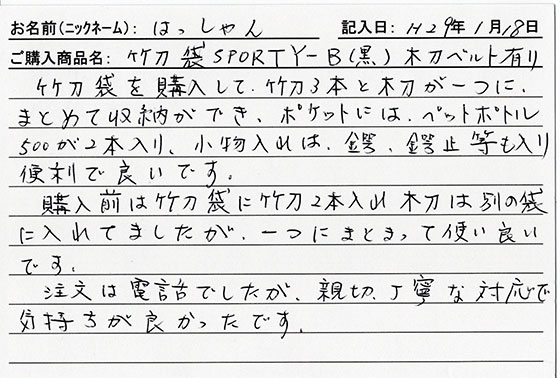 お名前(ニックネーム): はっしゃん 記入日: H29年1月18日
ご購入商品名: 竹刀袋SPORTY-B(黒) 木刀ベルト有り
竹刀袋を購入して、竹刀3本と木刀が一つに、
まとめて収納ができ、ポケットには、ペットボトル
500が2本入り、小物入れは、鍔、鍔止等も入り
便利で良いです。
購入前は竹刀袋に竹刀2本入れ木刀は別の袋
に入れてましたが、一つにまとまって使い良い
です。
注文は電話でしたが、親切、丁寧な対応で
気持ちが良かったです。